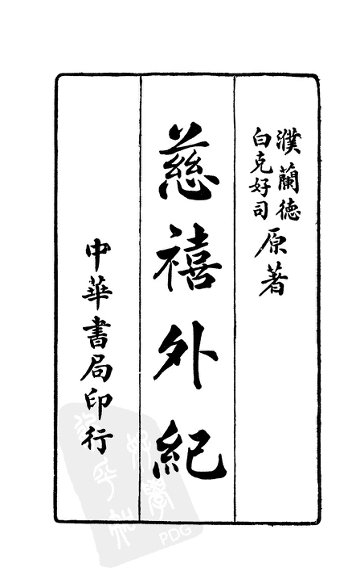 濮蘭德
白克好司
原著
慈禧外紀
中華書局印行
PDG